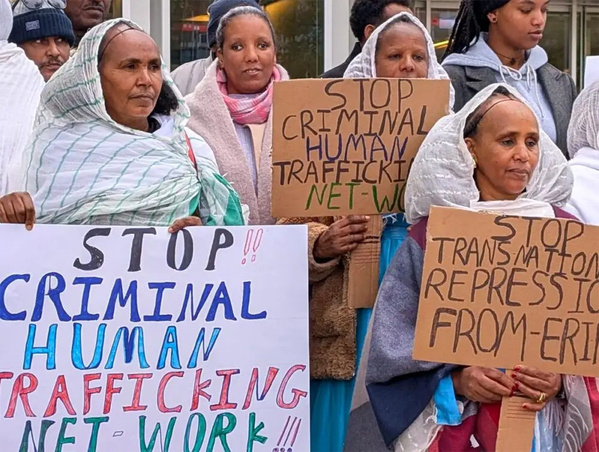 STOP!!
CRIMINAL
HUMAN
TRAFFICKING
NET-WORK!!!
STOP
CRIMINAL
HUMAN
TRAFFICKING
NET-WORK
STOP
TRANSNATION
REPRESSIO
FROM-ERI